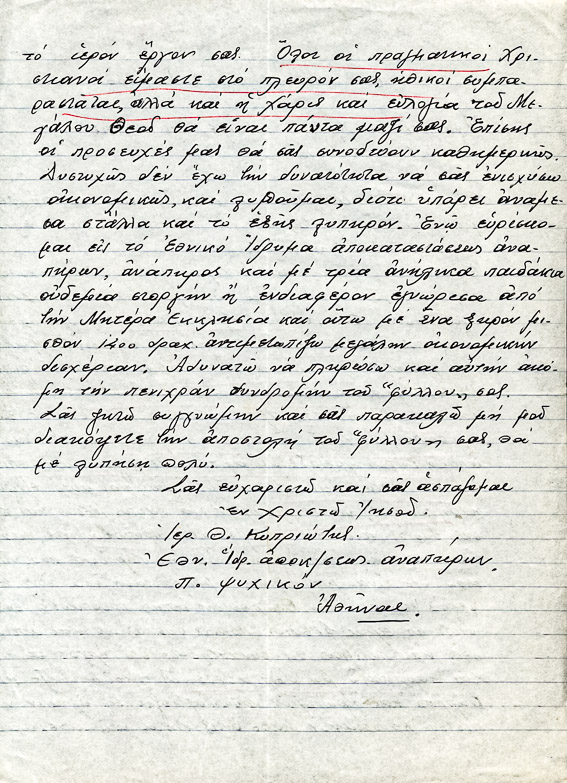 τό ἱερόν ἔργον σας. Ὅλοι οἱ πραγματικοί Χρι-
στιανοί εἴμαστε στό πλευρόν σας, ἠθικοί συμπα-
ραστάται, ἀλλά καί ἡ χάρις καί εὐλογία τοῦ Με-
γάλου Θεοῦ θά εἶναι πάντα μαζί σας. Ἐπίσης
οἱ προσευχές μας θά σᾶς συνοδεύουν καθημερινῶς.
Δυστυχῶς δέν ἔχω τήν δυνατότητα νά σας ἐνισχύσω
οἰκονομικῶς, καί λυποῦμαι, διότι ὑπάρχει ἀνάμε-
σα στἄλλα καί τό ἑξῆς λυπηρόν. Ἐνῶ εὑρίσκο-
μαι εἰς τό Ἐθνικό Ἵδρυμα ἀποκαταστάσεως ἀνα-
πήρων, ἀνάπηρος καί μέ τρία ἀνήλικα παιδάκια
οὐδεμία στοργήν ἤ ἐνδιαφέρον ἐγνώρισα ἀπό
τήν Μητέρα Ἐκκλησία καί οὕτω μέ ἕνα ξηρόν μι-
σθόν 1200 δραχ. ἀντιμετωπίζω μεγάλην οἰκονομικήν
δυσχέρειαν. Ἀδυνατῶ νά πληρώσω καί αὐτήν ἀκό-
μη τήν πενιχράν συνδρομήν τοῦ "φύλλου" σας.
Σᾶς ζητῶ συγγνώμην καί σας παρακαλῶ μή μοῦ
διακόψητε τήν ἀποστολή τοῦ "φύλλου" σας, θά
μέ λυπήση πολύ.
Σᾶς εὐχαριστῶ καί σᾶς ἀσπάζομαι
ἐν Χριστῷ Ἰησοῦ.
Ἱερ. Θ. Κυπριώτης.
Ἐθν. Ἵδρ. ἀποκ/σεως ἀναπήρων.
Π. ψυχικόν
Ἀθῆναι.